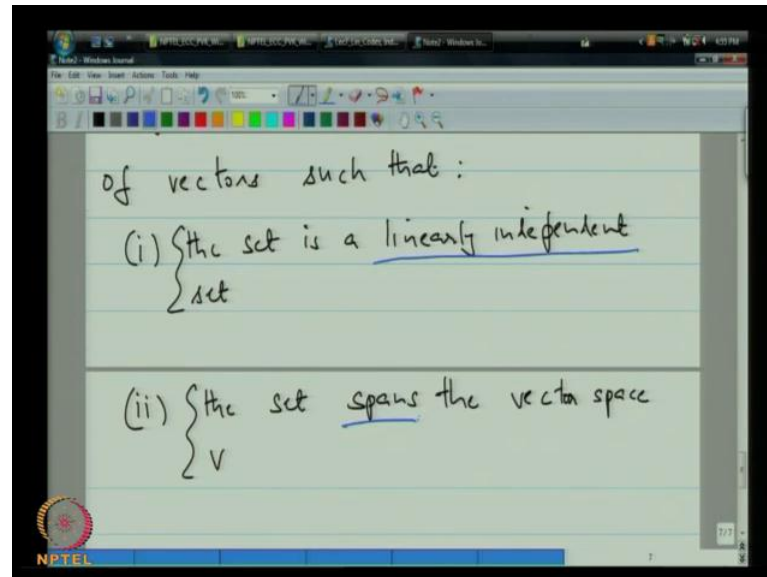 Note2 - Windows Journal
File Edit View Insert Actions Tools Help
of vectors such that :
(i) the set is a linearly independent
set
(ii) the set spans the vector space
V
7/7
7
NPTEL